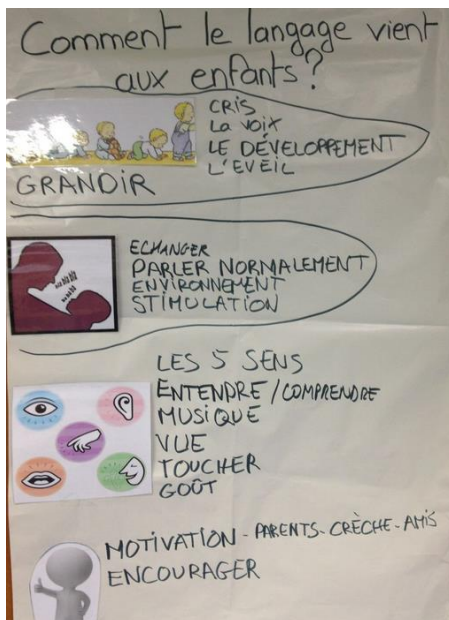 Comment le langage vient
aux enfants?
CRIS
La voix
LE DÉVELOPPEMENT
L'EVEIL
GRANDIR
ECHANGER
PARLER NORMALEMENT
ENVIRONNEMENT
STIMULATION
LES 5 SENS
ENTENDRE / COMPRENDRE
MUSIQUE
VUE
TOUCHER
GOÛT
MOTIVATION - PARENTS - CRÈCHE - AMIS
ENCOURAGER